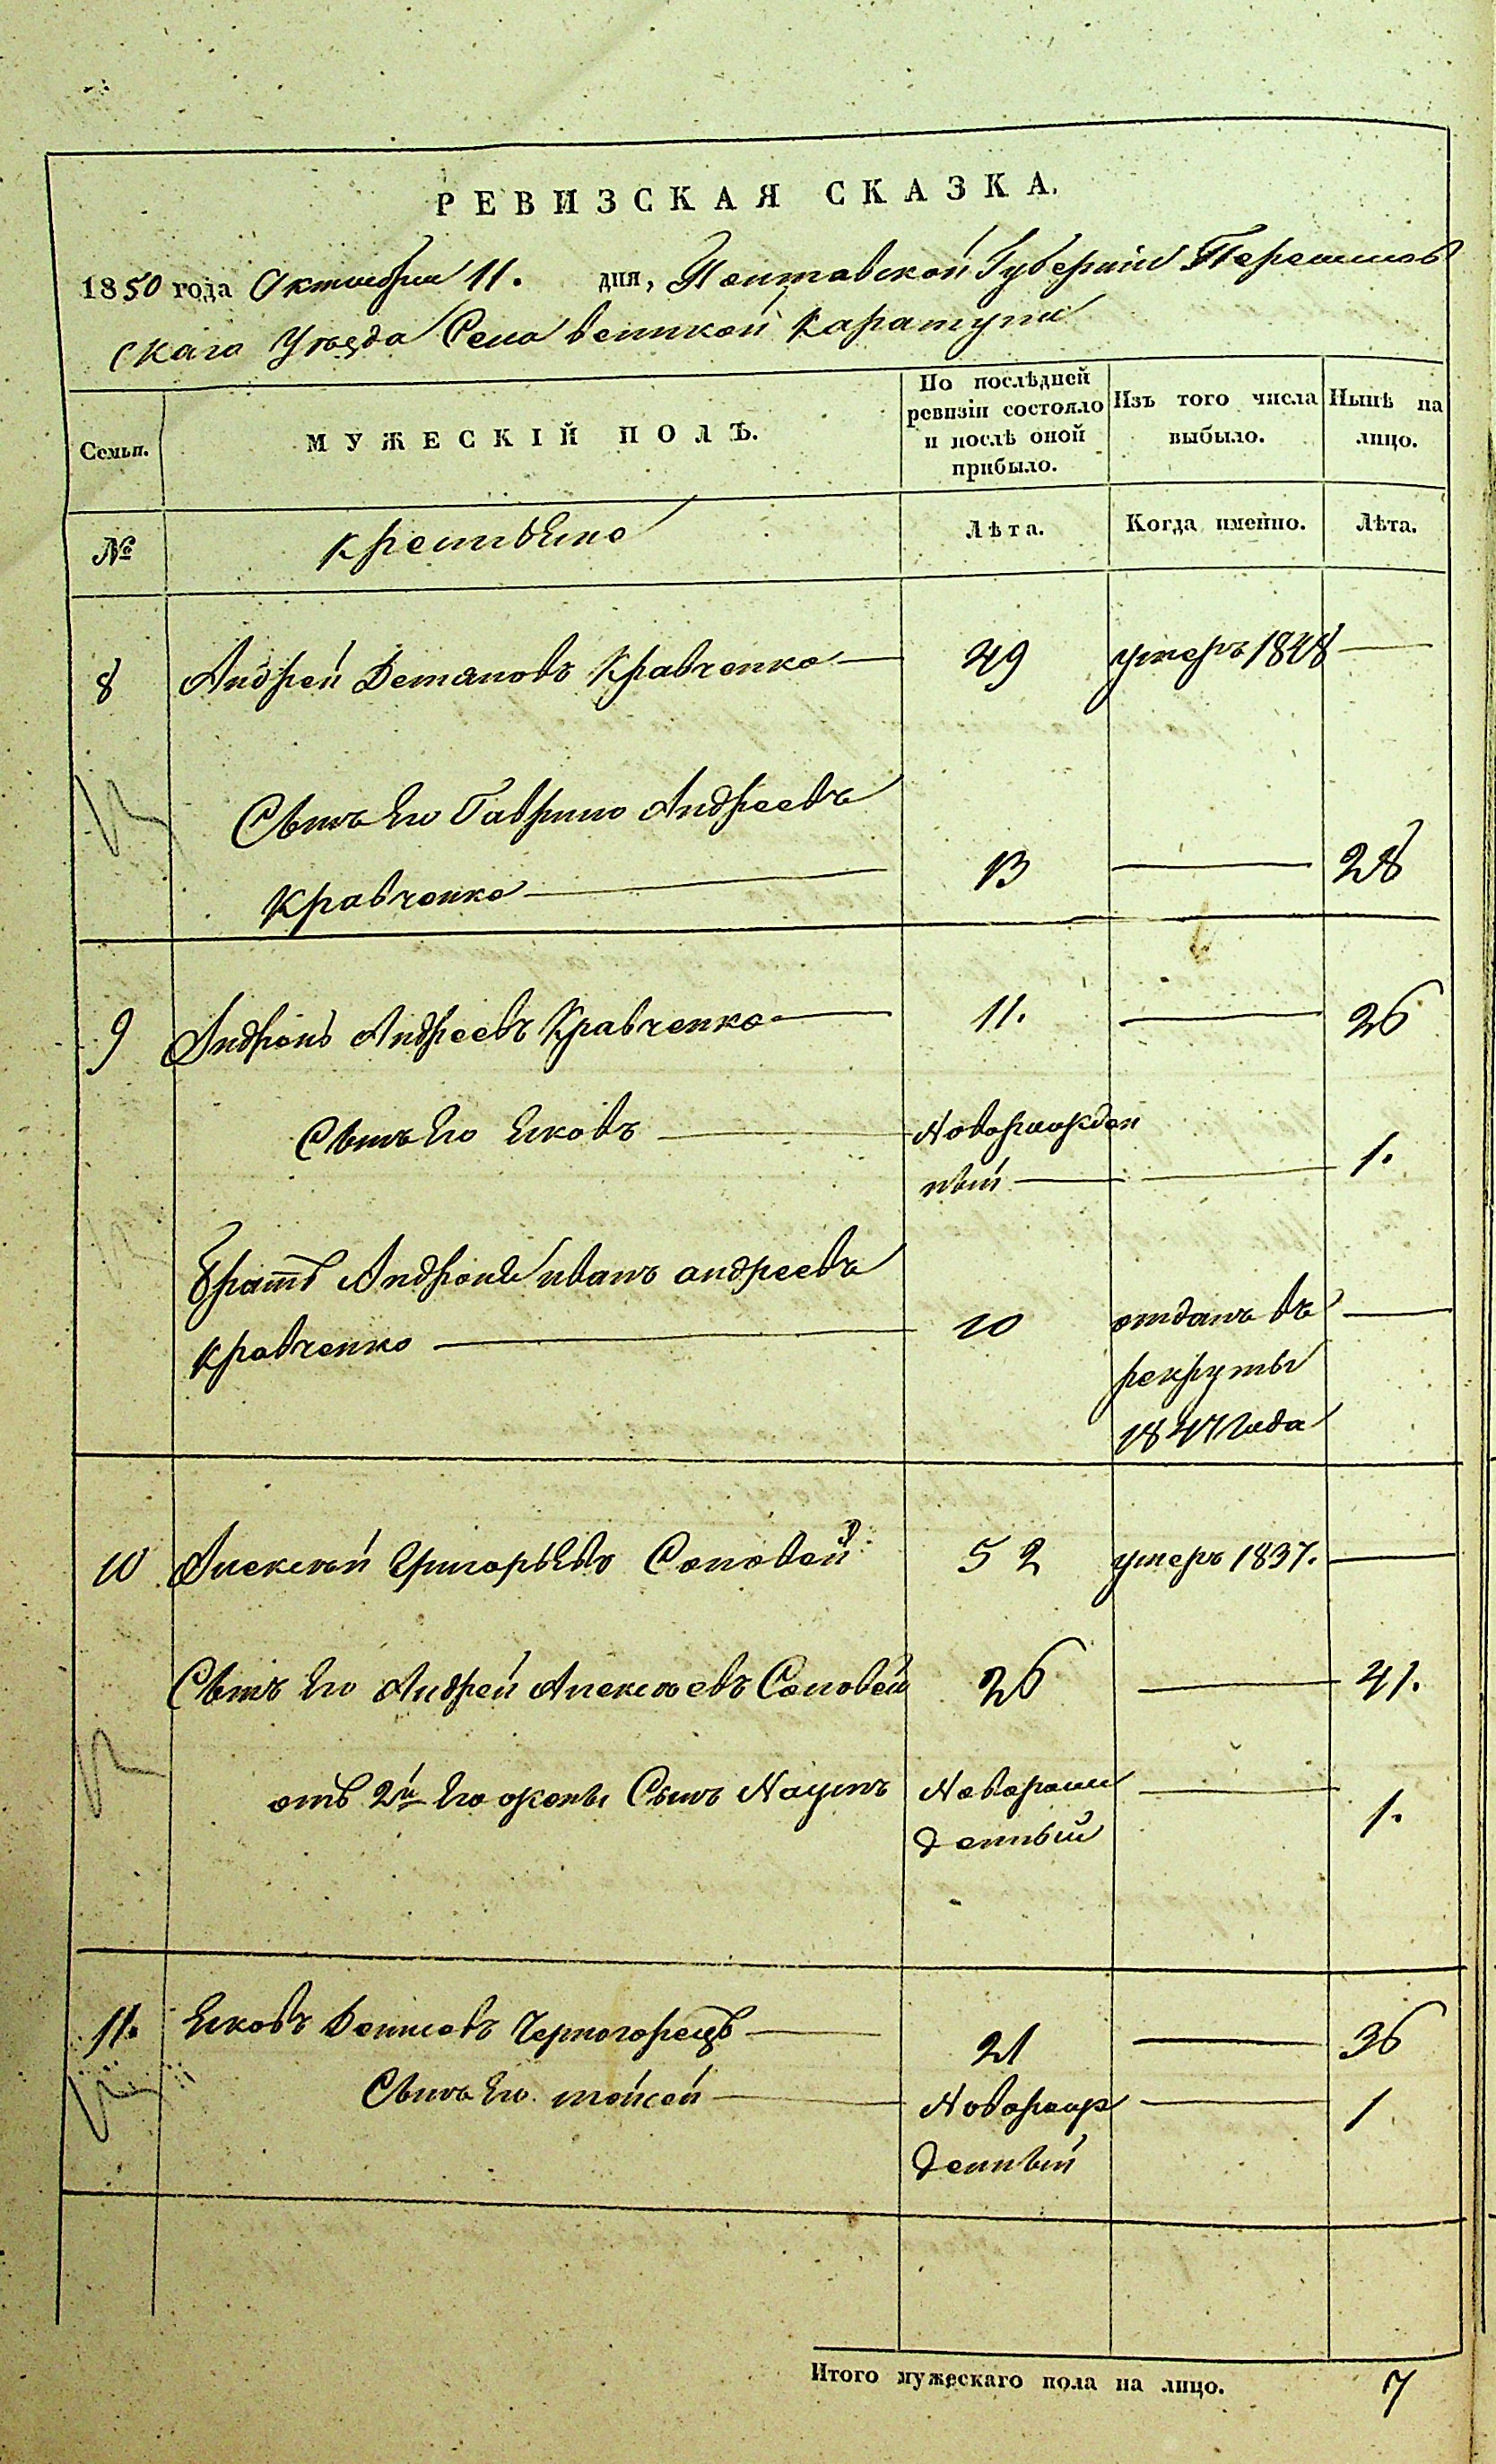 РЕВИЗСКАЯ СКАЗКА.
1850 года Октября 11. дня, Полтавской Губернiи Переяслов
скаго Уѣзда Села великой Каратули
Семьи.
МУЖЕСКІЙ ПОЛЪ.
По послѣдней ревизіи состояло и послѣ оной прибыло.
Изъ того числа выбыло.
Нынѣ на лицо.
№
Крестьяне
Лѣта.
Когда именно.
Лѣта.
8 Андрей Демяновъ Кравченко — 49 умеръ 1848 —
Сынъ Его Гаврило Андреевъ
Кравченко — 13 — 28
9 Андронъ Андреевъ Кравченко — 11. — 26
Сынъ Его Яковъ — Новорожден
ный — — 1.
Братъ Андрона иванъ андреевъ
Кравченко — 10 отданъ въ —
рекруты
1847 Года
10 Алексѣй Григорьевъ Соловей 52 умеръ 1837. —
Сынъ Его Андрей Алексѣевъ Соловей 26 — 41.
отъ 2й Его жены Сынъ Наумъ Новорож — 1.
денный
11. Яковъ Денисовъ Черногорецъ — 21 — 36
Сынъ Его мойсей — Новорож — 1
денный
Итого мужескаго пола на лицо. 7